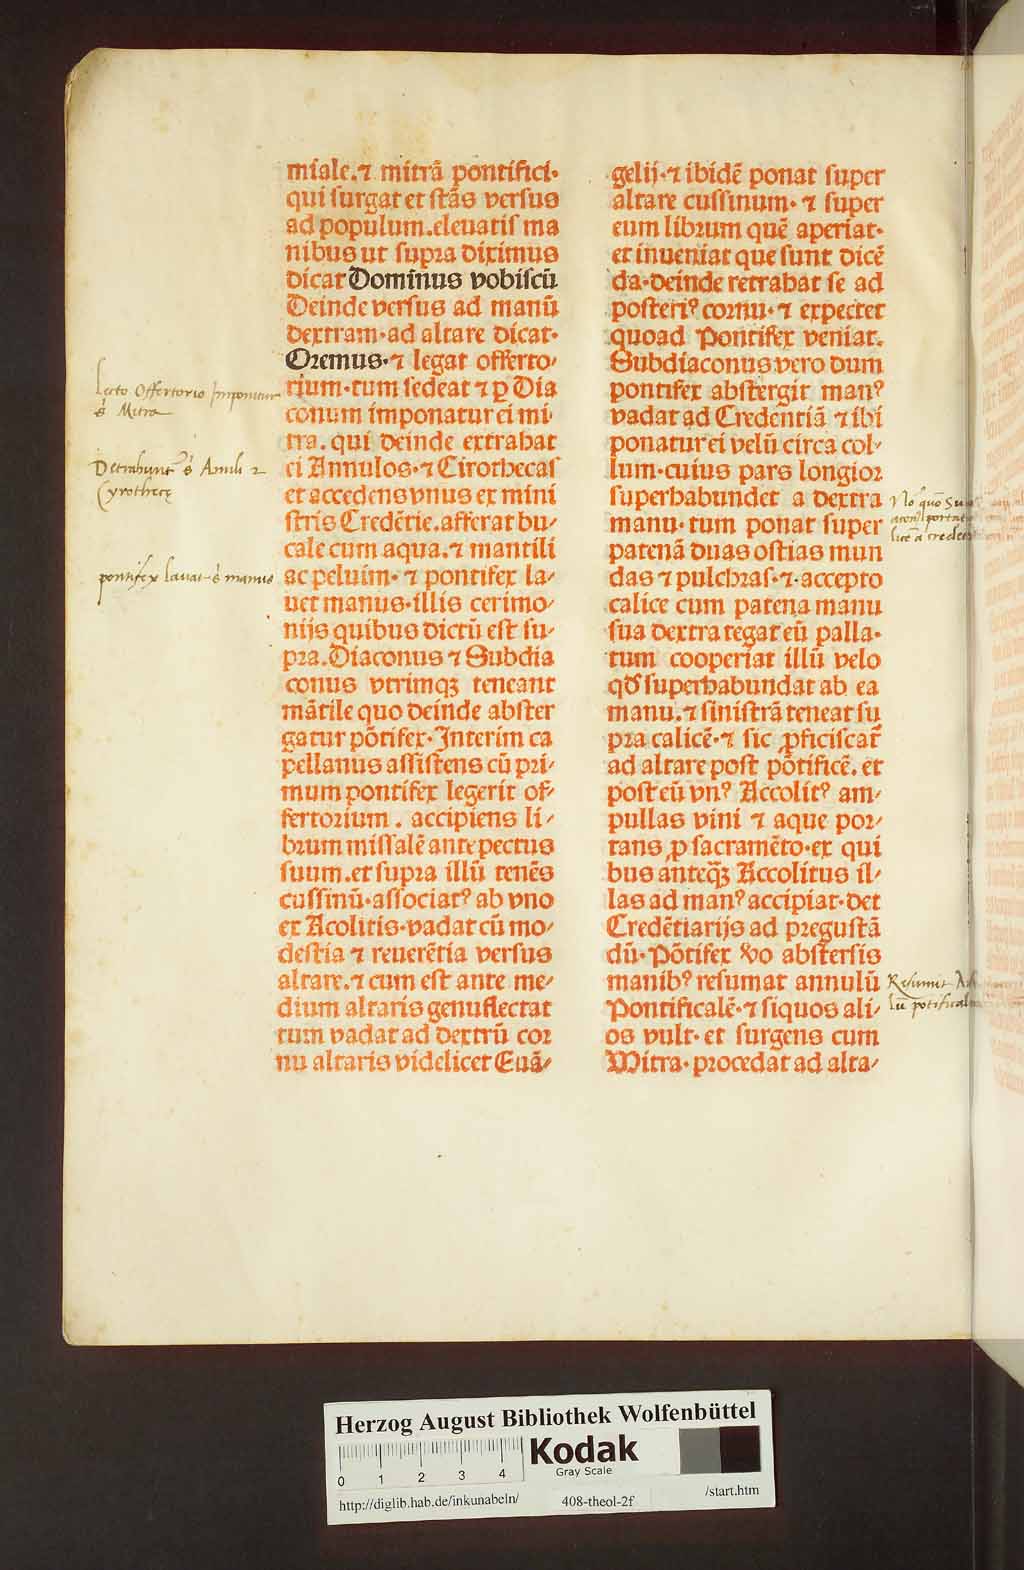 miale.⁊ mitrā pontifici·
qui surgat et stās versus
ad populum.eleuatis ma
nibus ut supra diximus
dicat Dominus vobiscū
Deinde versus ad manū
dextram·ad altare dicat·
Oremus·⁊ legat offerto/
rium·tum sedeat ⁊ ꝑ Dia
conum imponatur ei mi/
tra. qui deinde extrahat
ei Annulos·⁊ Cirothecas
et accedens vnus ex mini
stris Credētie.afferat bu/
cale cum aqua.⁊ mantili
ac peluim·⁊ pontifex la/
uet manus·illis cerimo/
nijs quibus dictū est su/
pra.Diaconus ⁊ Subdia
conus vtrimqꝫ teneant
mātile quo deinde abster
gatur pōtifex·Interim ca
pellanus assistens cū pri/
mum pontifex legerit of/
fertorium . accipiens li/
brum missalē ante pectus
suum.et supra illū tenēs
cussinū·associatꝰ ab vno
ex Acolitis·vadat cū mo/
destia ⁊ reuerētia versus
altare.⁊ cum est ante me/
dium altaris genuflectat
tum vadat ad dextrū cor
nu altaris videlicet Euā/
gelij·⁊ ibidē ponat super
altare cussinum·⁊ super
eum librum quē aperiat·
et inueniat que sunt dicē
da·deinde retrahat se ad
posteriꝰ cornu·⁊ expectet
quoad Pontifex veniat.
Subdiaconus vero dum
pontifex abstergit manꝰ
vadat ad Credentiā ⁊ ibi
ponatur ei velū circa col/
lum·cuius pars longior
superhabundet a dextra
manu·tum ponat super
patenā duas ostias mun
das ⁊ pulchras·⁊ accepto
calice cum patena manu
sua dextra tegat eū palla·
tum cooperiat illū velo
qď superhabundat ab ea
manu.⁊ sinistrā teneat su
pra calicē·⁊ sic ꝓficiscat᷑
ad altare post pōtificē. et
post eū vnꝰ Accolitꝰ am/
pullas vini ⁊ aque por/
tans ꝓ sacramēto·ex qui
bus anteqꝫ Accolitus il/
las ad manꝰ accipiat·det
Credētiarijs ad pregustā
dū·Pōtifex ꝟo abstersis
manibꝰ resumat annulū
Pontificalē·⁊ siquos ali/
os vult·et surgens cum
Mitra·procedat ad alta/
Lecto Offertorio Imponitur
Mitra
Detrahunt
Cyrothecę
pontifex lavat manus
Resumit
Herzog August Bibliothek Wolfenbüttel
0 1 2 3 4
Kodak
Gray Scale
http://diglib.hab.de/inkunabeln/ 408-theol-2f /start.htm